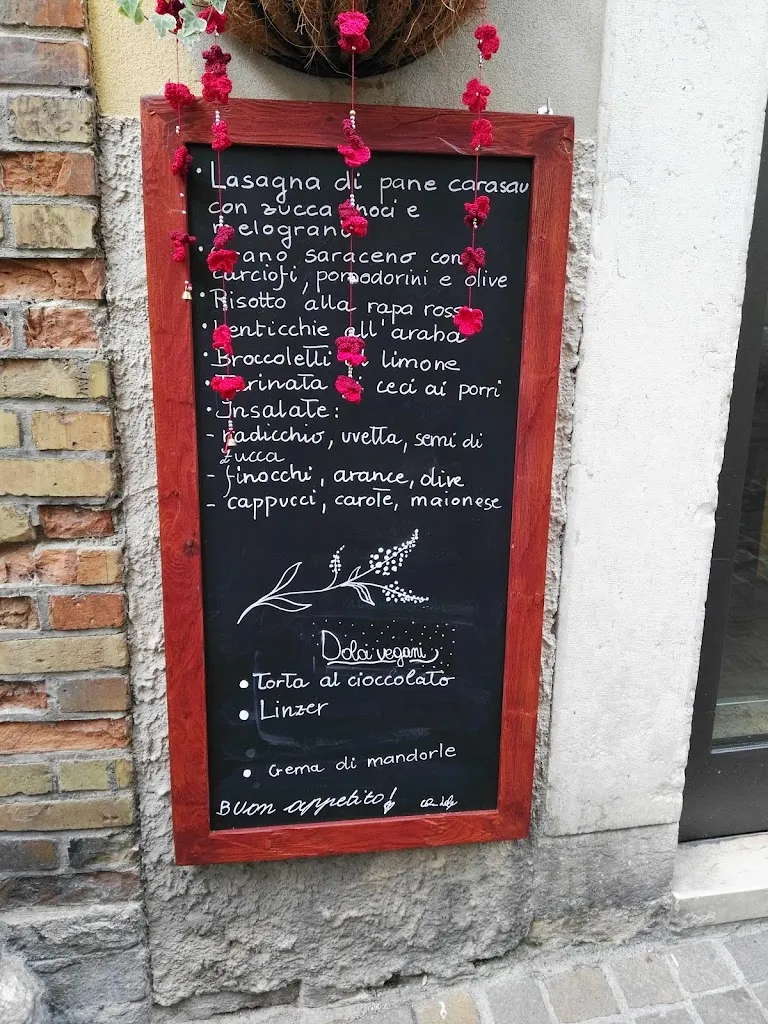 • Lasagna di pane carasau
con zucca noci e
melograno
• Grano saraceno con
carciofi, pomodorini e olive
• Risotto alla rapa rossa
• Lenticchie all'araba
• Broccoletti al limone
• Farinata di ceci ai porri
• Insalate:
- radicchio, uvetta, semi di
zucca
- finocchi, arance, olive
- cappucci, carote, maionese
Dolci vegani
• Torta al cioccolato
• Linzer
• Crema di mandorle
Buon appetito!